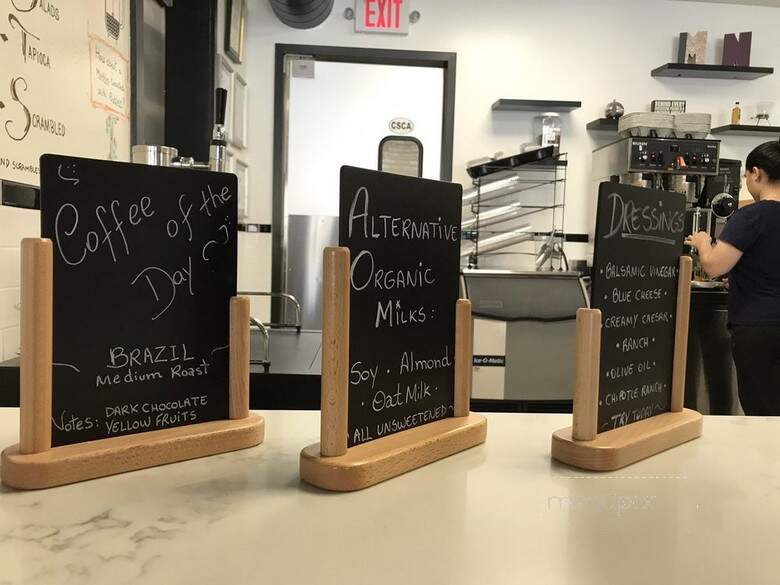 EXIT
CSCA
SALADS
TAPIOCA
SCRAMBLED
Coffee of the
Day
BRAZIL
Medium Roast
Notes: DARK CHOCOLATE
YELLOW FRUITS
ALTERNATIVE
ORGANIC
MILKS:
Soy • Almond
• Oat Milk •
ALL UNSWEETENED
Ice-O-Matic
DRESSINGS
• BALSAMIC VINEGAR •
• BLUE CHEESE •
• CREAMY CAESAR •
• RANCH •
• OLIVE OIL •
• CHIPOTLE RANCH •
N
menupix